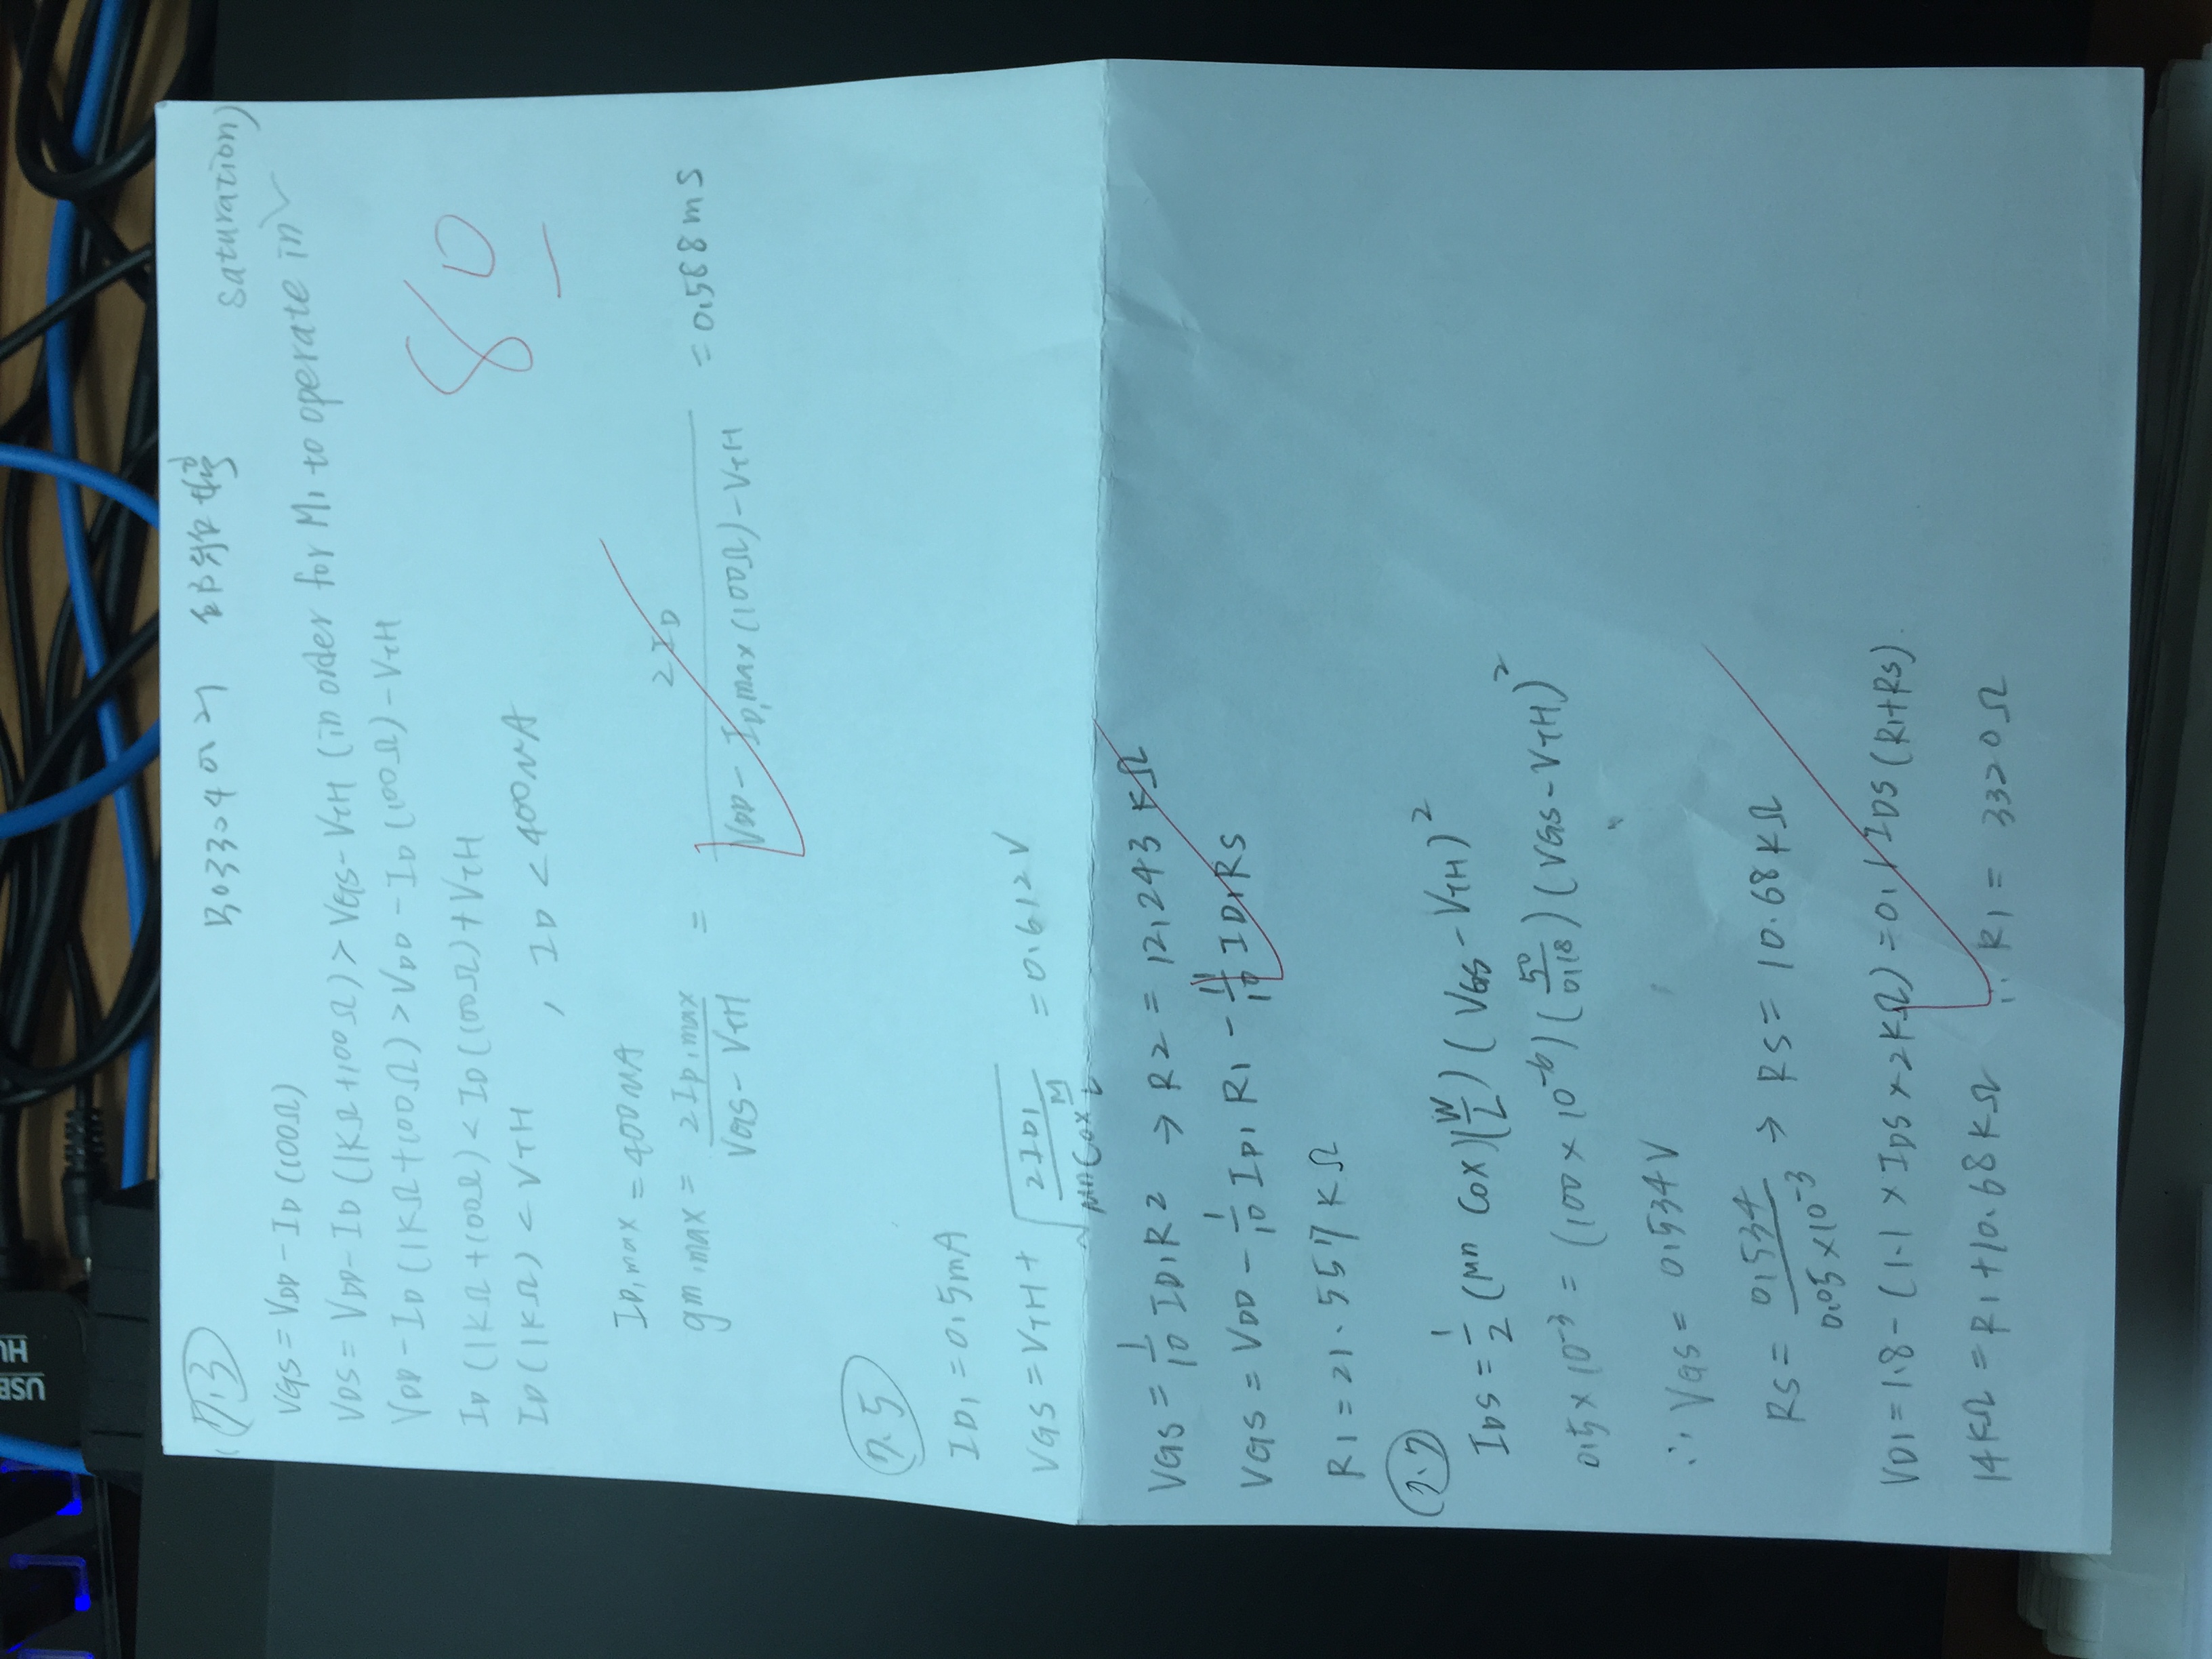 USB
HU
7.3
B03304021
saturation)
VGS = VDD - ID (100Ω)
VDS = VDD - ID (1KΩ + 100Ω) > VGS - VTH (in order for M1 to operate in
VDD - ID (1KΩ + 100Ω) > VDD - ID (100Ω) - VTH
ID (1KΩ + 100Ω) < ID (100Ω) + VTH
80
ID (1KΩ) < VTH , ID < 400 μA
ID,max = 400 μA
gm,max = 2ID,max / (VGS - VTH) = 2ID / (VDD - ID,max (100Ω) - VTH) = 0.588 mS
7.5
ID1 = 0.5mA
VGS = VTH + √(2ID1 / (μn Cox W/L)) = 0.612 V
VGS = 1/10 ID1 R2 → R2 = 12.243 KΩ
VGS = VDD - 1/10 ID1 R1 - 11/10 ID1 RS
R1 = 21.557 KΩ
7.7
IDS = 1/2 (μn Cox)(W/L) (VGS - VTH)²
0.5 × 10⁻³ = (100 × 10⁻⁶) (50/0.18) (VGS - VTH)²
∴ VGS = 0.534 V
RS = 0.534 / (0.05 × 10⁻³) → RS = 10.68 KΩ
VD1 = 1.8 - (1.1 × IDS × 2KΩ) = 0.1 IDS (R1 + RS)
14KΩ = R1 + 10.68 KΩ ∴ R1 = 3320 Ω